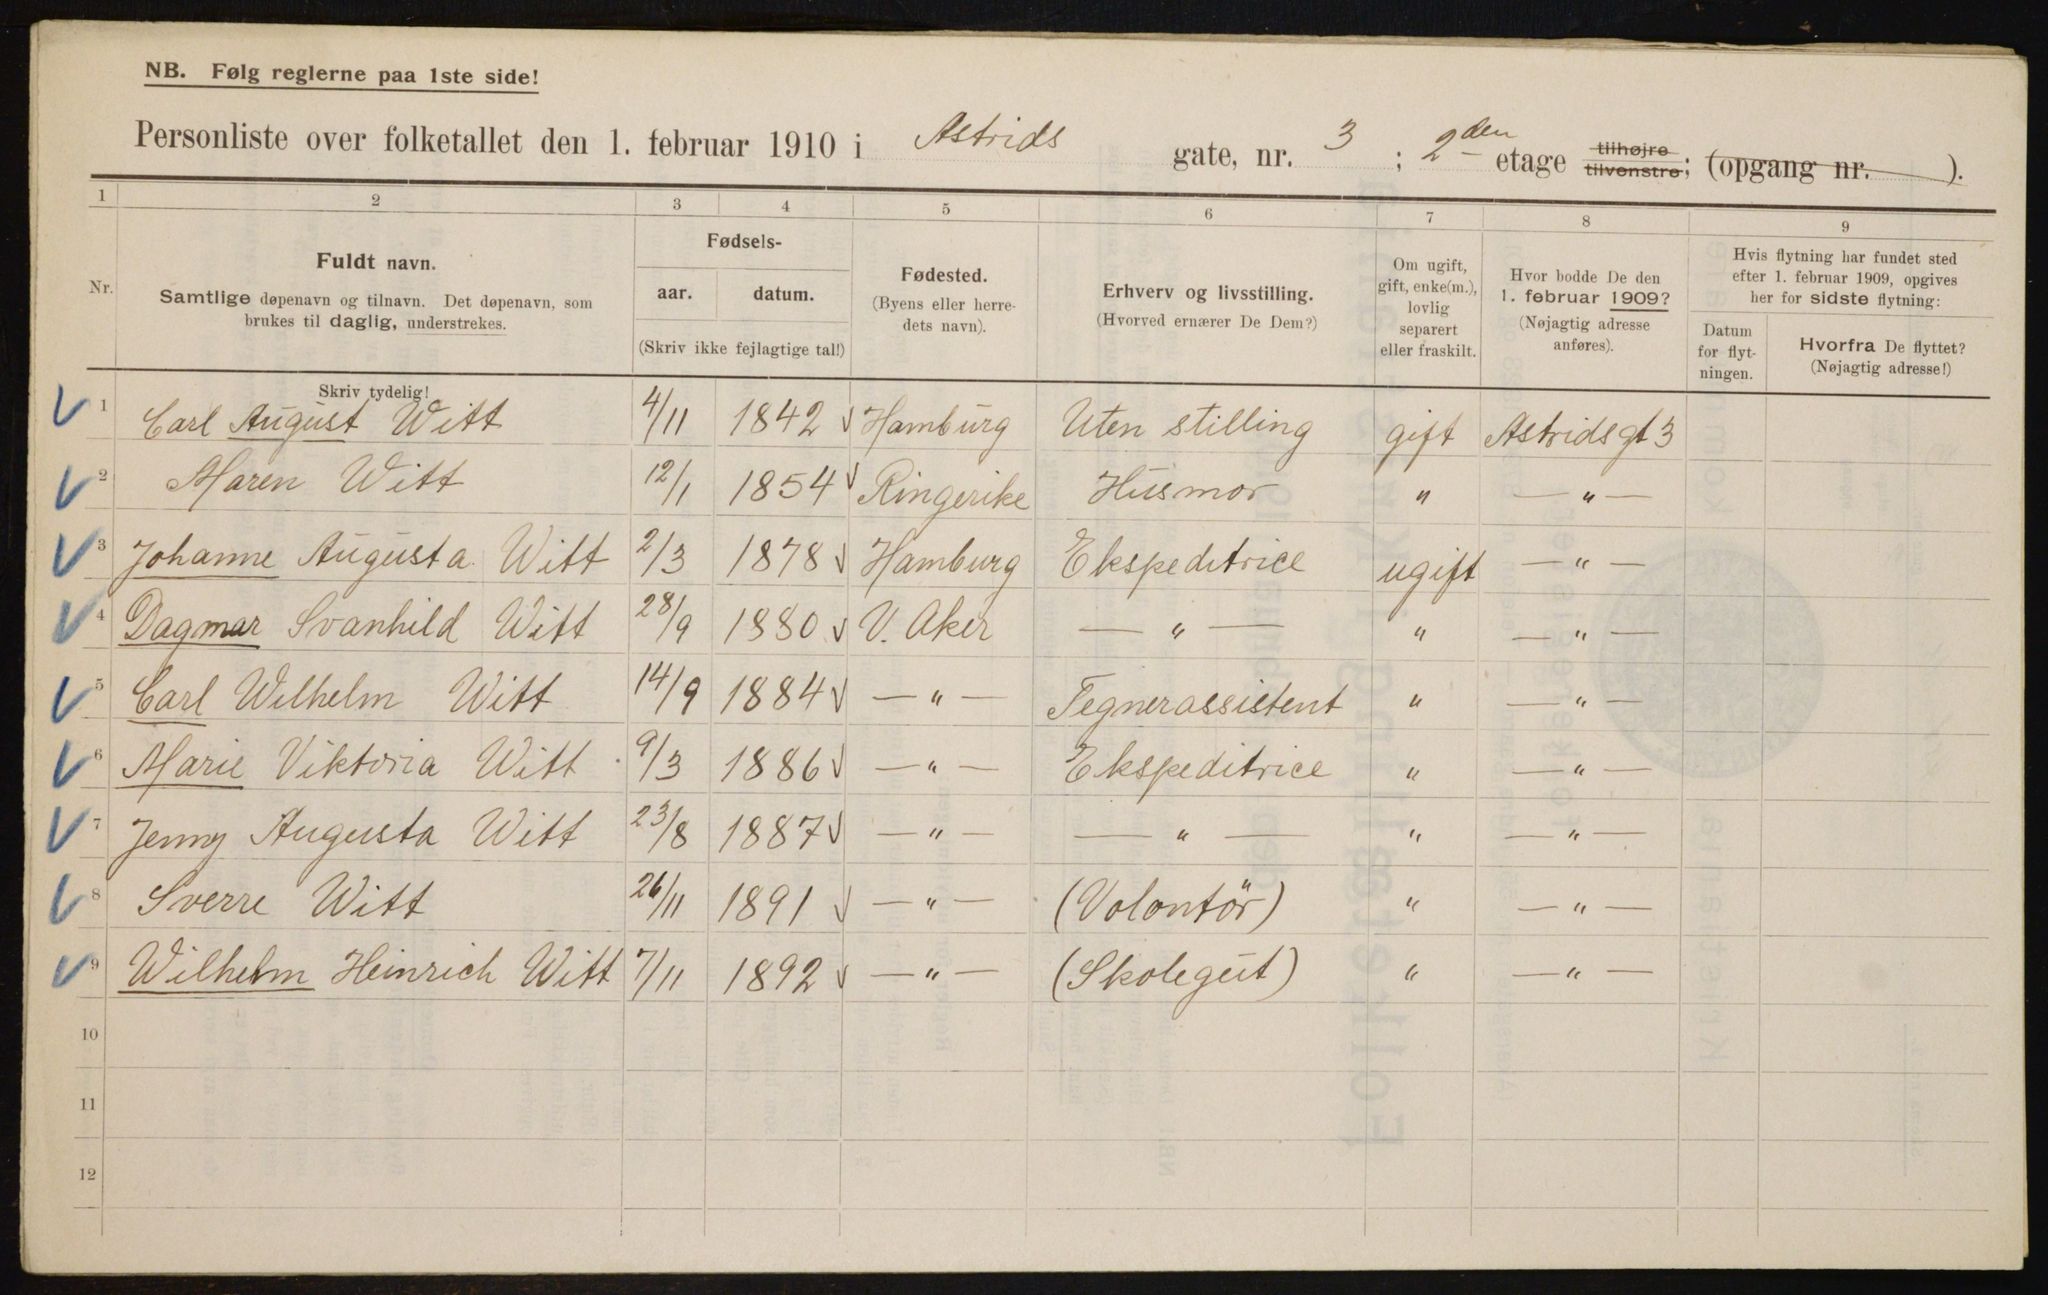 NB. Følg reglerne paa 1ste side!
Personliste over folketallet den 1. februar 1910 i Astrids gate, nr. 3 ; 2den etage tilhøjre tilvenstre; (opgang nr. ).
1 2 3 4 5 6 7 8 9
Nr.
Fuldt navn.
Samtlige døpenavn og tilnavn. Det døpenavn, som
brukes til daglig, understrekes.
Skriv tydelig!
Fødsels-
aar. datum.
(Skriv ikke fejlagtige tal!)
Fødested.
(Byens eller herre-
dets navn).
Erhverv og livsstilling.
(Hvorved ernærer De Dem?)
Om ugift,
gift, enke(m.),
lovlig
separert
eller fraskilt.
Hvor bodde De den
1. februar 1909?
(Nøjagtig adresse
anføres).
Hvis flytning har fundet sted
efter 1. februar 1909, opgives
her for sidste flytning:
Datum
for flyt-
ningen.
Hvorfra De flyttet?
(Nøjagtig adresse!)
1 Carl August Witt 4/11 1842 Hamburg Uten stilling gift Astridsgt 3
2 Maren Witt 12/1 1854 Ringerike Husmor " — " —
3 Johanne Augusta Witt 2/3 1878 Hamburg Ekspeditrice ugift — " —
4 Dagmar Svanhild Witt 28/9 1880 V. Aker — " — " — " —
5 Carl Wilhelm Witt 14/9 1884 — " — Tegnerassistent " — " —
6 Marie Viktoria Witt 9/3 1886 — " — Ekspeditrice " — " —
7 Jenny Augusta Witt 23/8 1887 — " — — " — " — " —
8 Sverre Witt 26/11 1891 — " — (Volontör) " — " —
9 Wilhelm Heinrich Witt 7/11 1892 — " — (Skolegut) " — " —
10
11
12